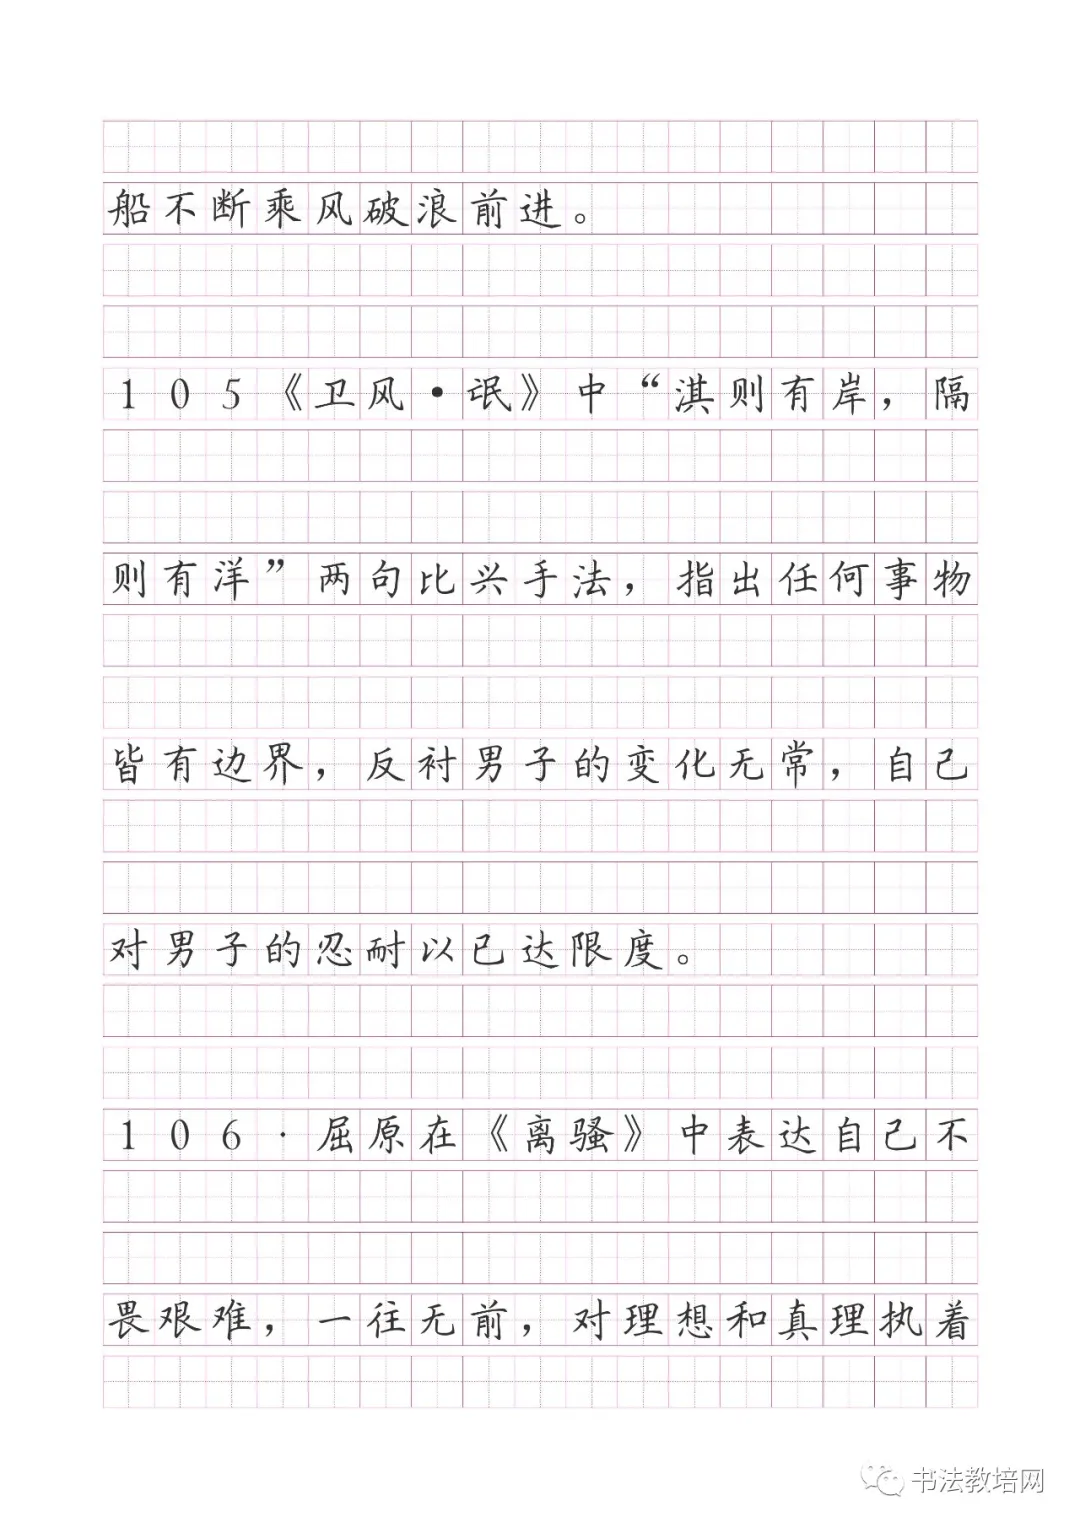 船不断乘风破浪前进。
105《卫风·氓》中“淇则有岸，隔
则有洋”两句比兴手法，指出任何事物
皆有边界，反衬男子的变化无常，自己
对男子的忍耐以已达限度。
106·屈原在《离骚》中表达自己不
畏艰难，一往无前，对理想和真理执着
书法教培网